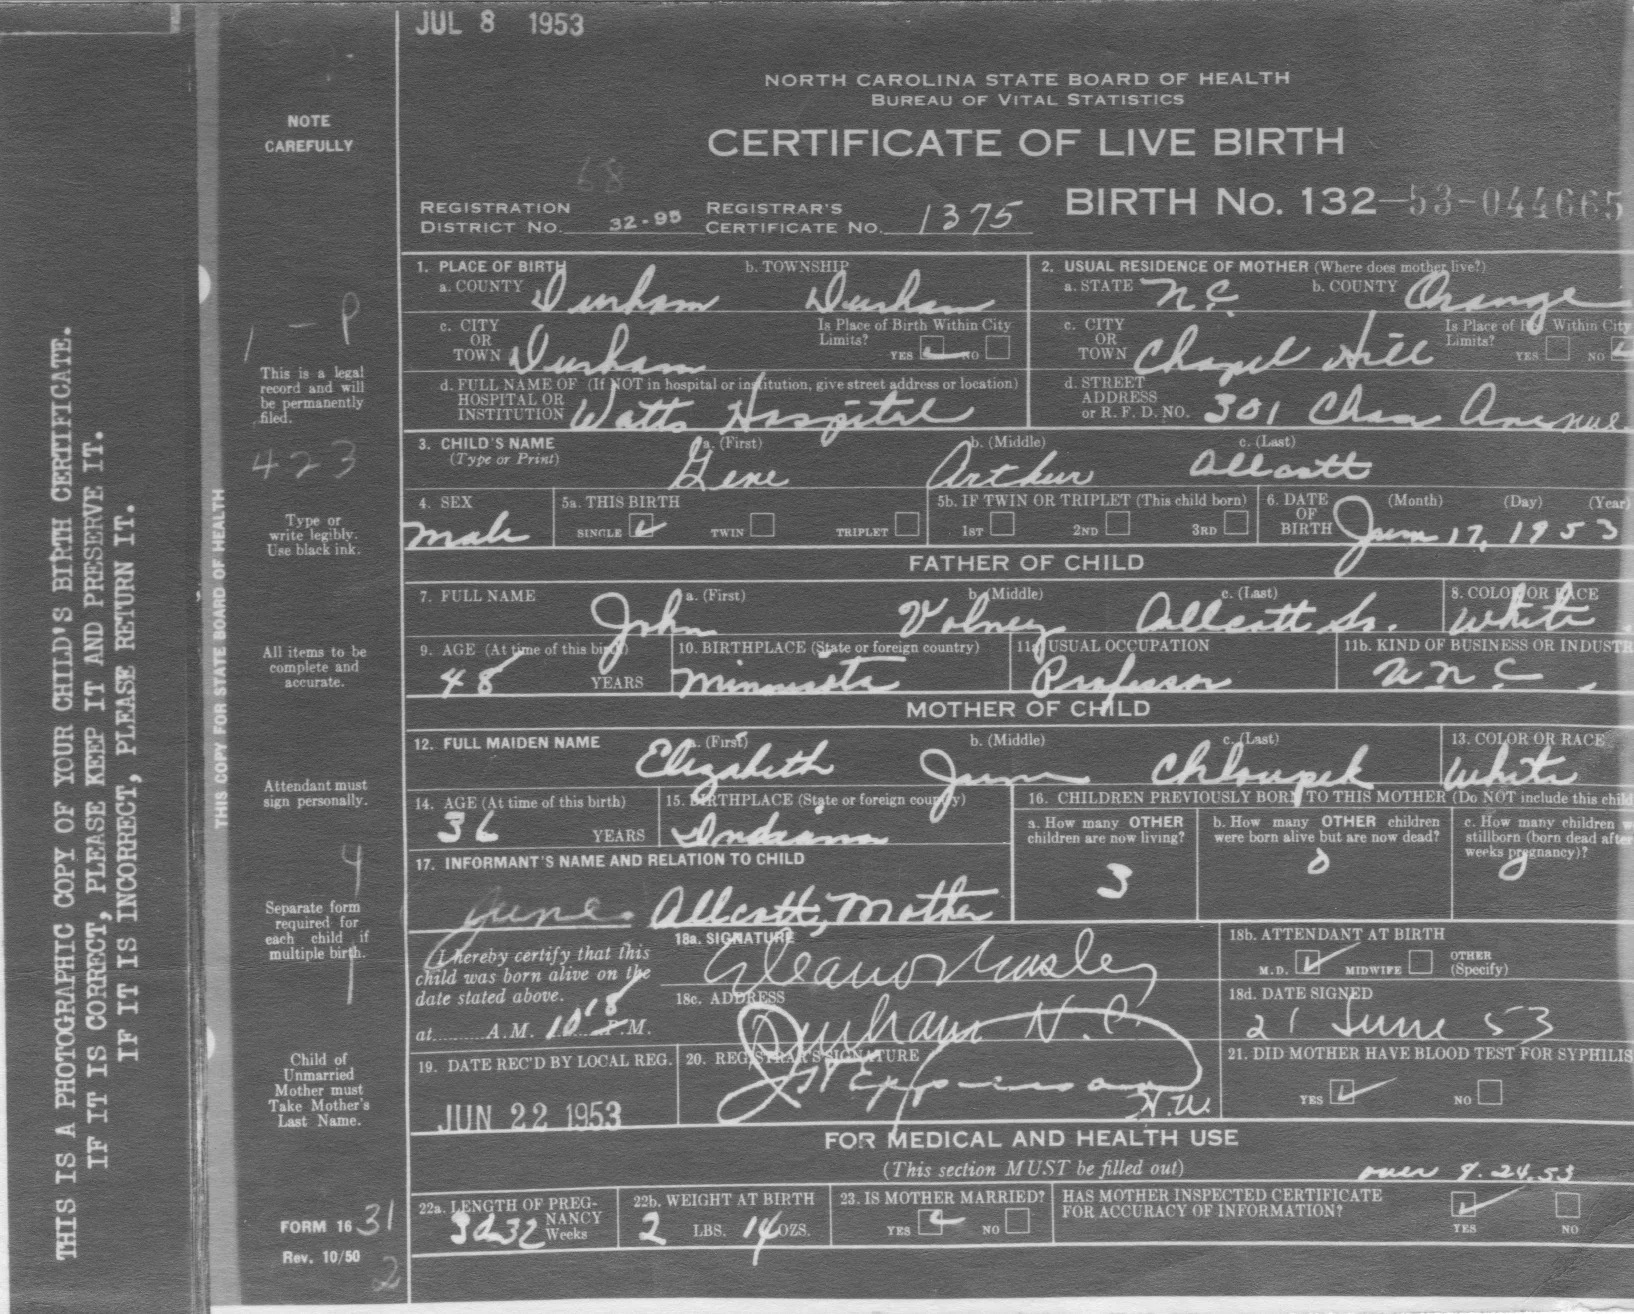 JUL 8 1953
NORTH CAROLINA STATE BOARD OF HEALTH
BUREAU OF VITAL STATISTICS
CERTIFICATE OF LIVE BIRTH
68
REGISTRATION DISTRICT NO. 32-95 REGISTRAR'S CERTIFICATE NO. 1375 BIRTH No. 132-53-044665
1. PLACE OF BIRTH
a. COUNTY Durham b. TOWNSHIP Durham
c. CITY OR TOWN Durham Is Place of Birth Within City Limits? YES NO
d. FULL NAME OF (If NOT in hospital or institution, give street address or location)
HOSPITAL OR INSTITUTION Watts Hospital
2. USUAL RESIDENCE OF MOTHER (Where does mother live?)
a. STATE N.C. b. COUNTY Orange
c. CITY OR TOWN Chapel Hill Is Place of Within City Limits? YES NO
d. STREET ADDRESS or R. F. D. NO. 301 Avenue
3. CHILD'S NAME (Type or Print) a. (First) Gene b. (Middle) Arthur c. (Last) Allcott
4. SEX Male
5a. THIS BIRTH SINGLE TWIN TRIPLET
5b. IF TWIN OR TRIPLET (This child born) 1ST 2ND 3RD
6. DATE OF BIRTH (Month) (Day) (Year) June 17, 1953
FATHER OF CHILD
7. FULL NAME a. (First) John b. (Middle) Volney c. (Last) Allcott Sr.
8. COLOR OR RACE White
9. AGE (At time of this birth) 48 YEARS
10. BIRTHPLACE (State or foreign country) Minnesota
11a. USUAL OCCUPATION Professor
11b. KIND OF BUSINESS OR INDUSTR U.N.C.
MOTHER OF CHILD
12. FULL MAIDEN NAME a. (First) Elizabeth b. (Middle) June c. (Last) Chloupek
13. COLOR OR RACE White
14. AGE (At time of this birth) 36 YEARS
15. BIRTHPLACE (State or foreign country) Indiana
16. CHILDREN PREVIOUSLY BORN TO THIS MOTHER (Do NOT include this child
a. How many OTHER children are now living? 3
b. How many OTHER children were born alive but are now dead? 0
c. How many children w stillborn (born dead after weeks pregnancy)? 0
17. INFORMANT'S NAME AND RELATION TO CHILD
June Allcott, Mother
I hereby certify that this child was born alive on the date stated above.
at A.M. 10 18 P.M.
18a. SIGNATURE Eleanor Easley
18b. ATTENDANT AT BIRTH M.D. MIDWIFE OTHER (Specify)
18c. ADDRESS Durham N.C.
18d. DATE SIGNED 21 June 53
19. DATE REC'D BY LOCAL REG. JUN 22 1953
20. REGISTRAR'S SIGNATURE
21. DID MOTHER HAVE BLOOD TEST FOR SYPHILIS YES NO
FOR MEDICAL AND HEALTH USE
(This section MUST be filled out)
over 9.24.53
22a. LENGTH OF PREGNANCY 32 Weeks
22b. WEIGHT AT BIRTH 2 LBS. 14 OZS.
23. IS MOTHER MARRIED? YES NO
HAS MOTHER INSPECTED CERTIFICATE FOR ACCURACY OF INFORMATION? YES NO
NOTE CAREFULLY
1 - P
This is a legal
record and will
be permanently
filed.
423
Type or
write legibly.
Use black ink.
All items to be
complete and
accurate.
Attendant must
sign personally.
4
Separate form
required for
each child if
multiple birth.
1
Child of
Unmarried
Mother must
Take Mother's
Last Name.
FORM 16 31
Rev. 10/50
2
THIS COPY FOR STATE BOARD OF HEALTH
THIS IS A PHOTOGRAPHIC COPY OF YOUR CHILD'S BIRTH CERTIFICATE.
IF IT IS CORRECT, PLEASE KEEP IT AND PRESERVE IT.
IF IT IS INCORRECT, PLEASE RETURN IT.